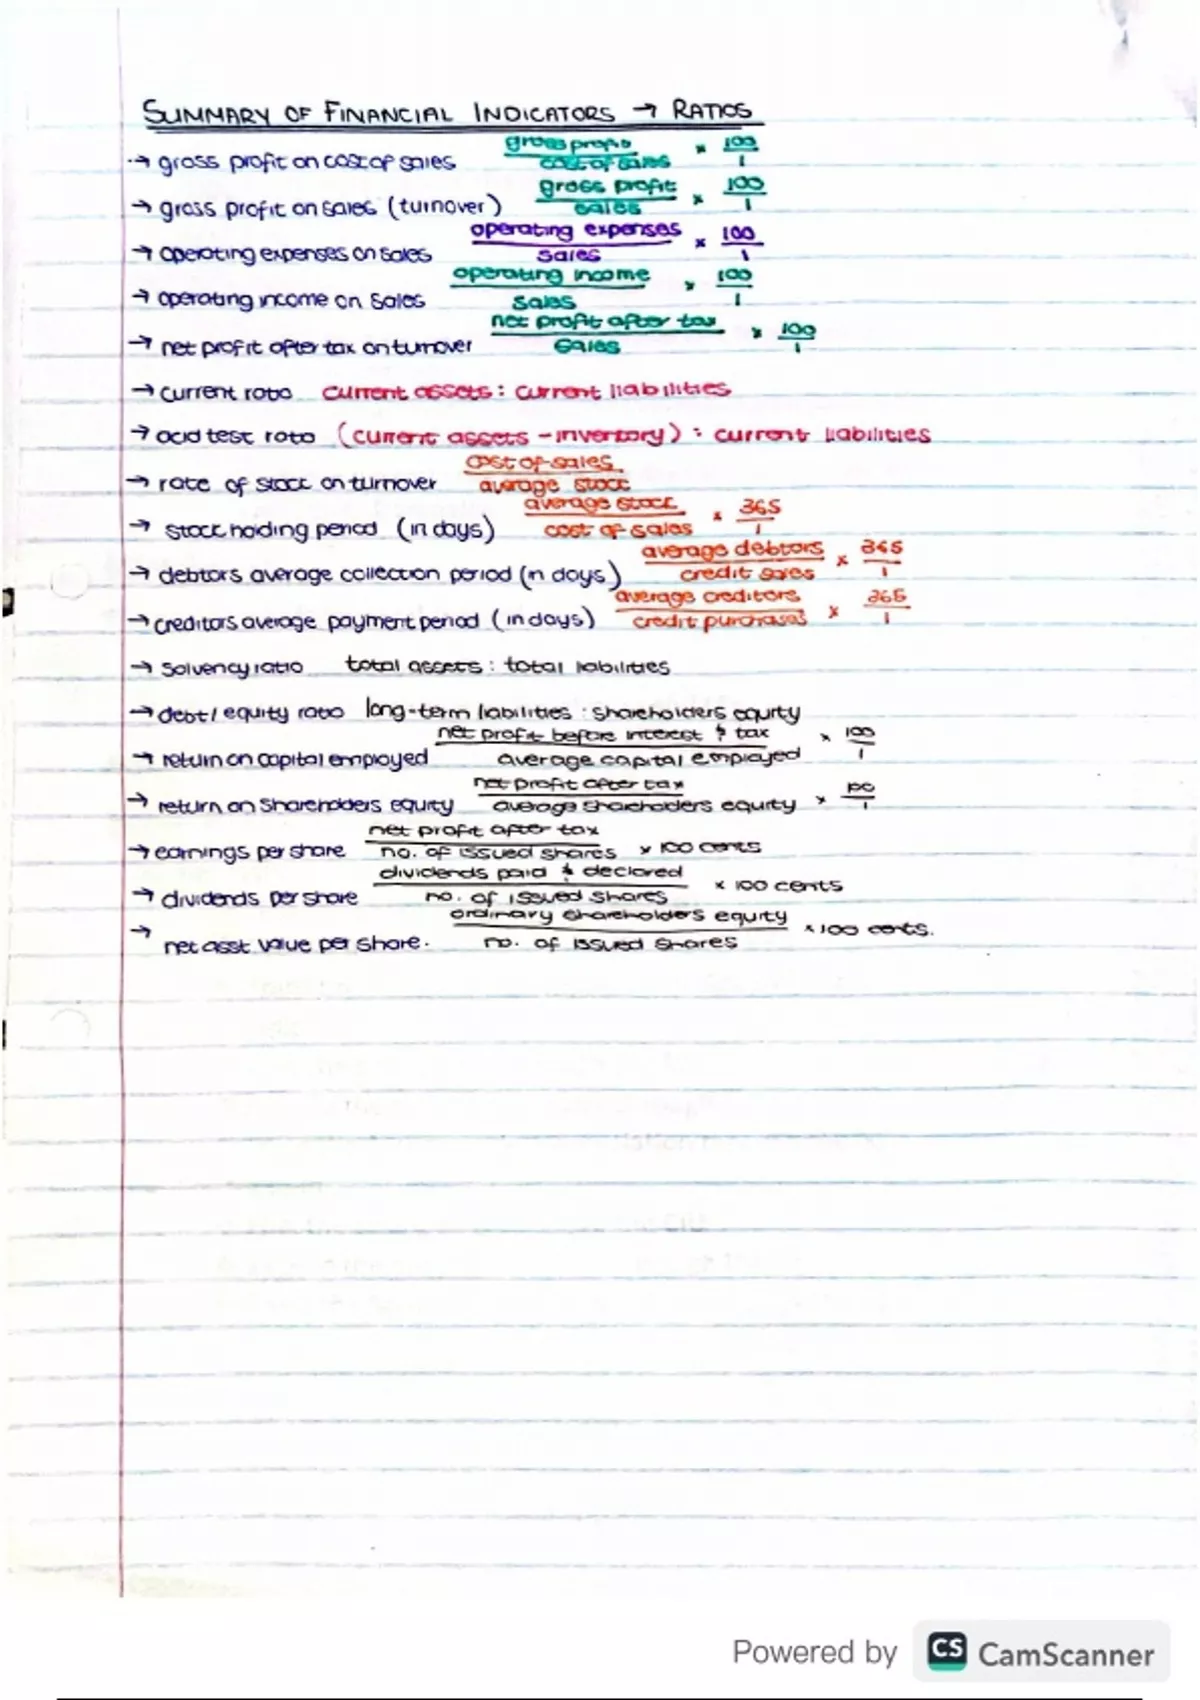 SUMMARY OF FINANCIAL INDICATORS → RATIOS
→ gross profit on cost of sales gross profit / cost of sales × 100/1
→ gross profit on sales (turnover) gross profit / sales × 100/1
→ operating expenses on sales operating expenses / sales × 100/1
→ operating income on sales operating income / sales × 100/1
→ net profit after tax on turnover net profit after tax / sales × 100/1
→ current ratio current assets : current liabilities
→ acid test ratio (current assets - inventory) : current liabilities
→ rate of stock on turnover cost of sales / average stock
→ stock holding period (in days) average stock / cost of sales × 365/1
→ debtors average collection period (in days) average debtors / credit sales × 365/1
→ creditors average payment period (in days) average creditors / credit purchases × 365/1
→ solvency ratio total assets : total liabilities
→ debt/equity ratio long-term liabilities : shareholders equity
→ return on capital employed net profit before interest & tax / average capital employed × 100/1
→ return on shareholders equity net profit after tax / average shareholders equity × 100/1
→ earnings per share net profit after tax / no. of issued shares × 100 cents
→ dividends per share dividends paid & declared / no. of issued shares × 100 cents
→ net asst value per share. ordinary shareholders equity / no. of issued shares × 100 cents.
Powered by CS CamScanner